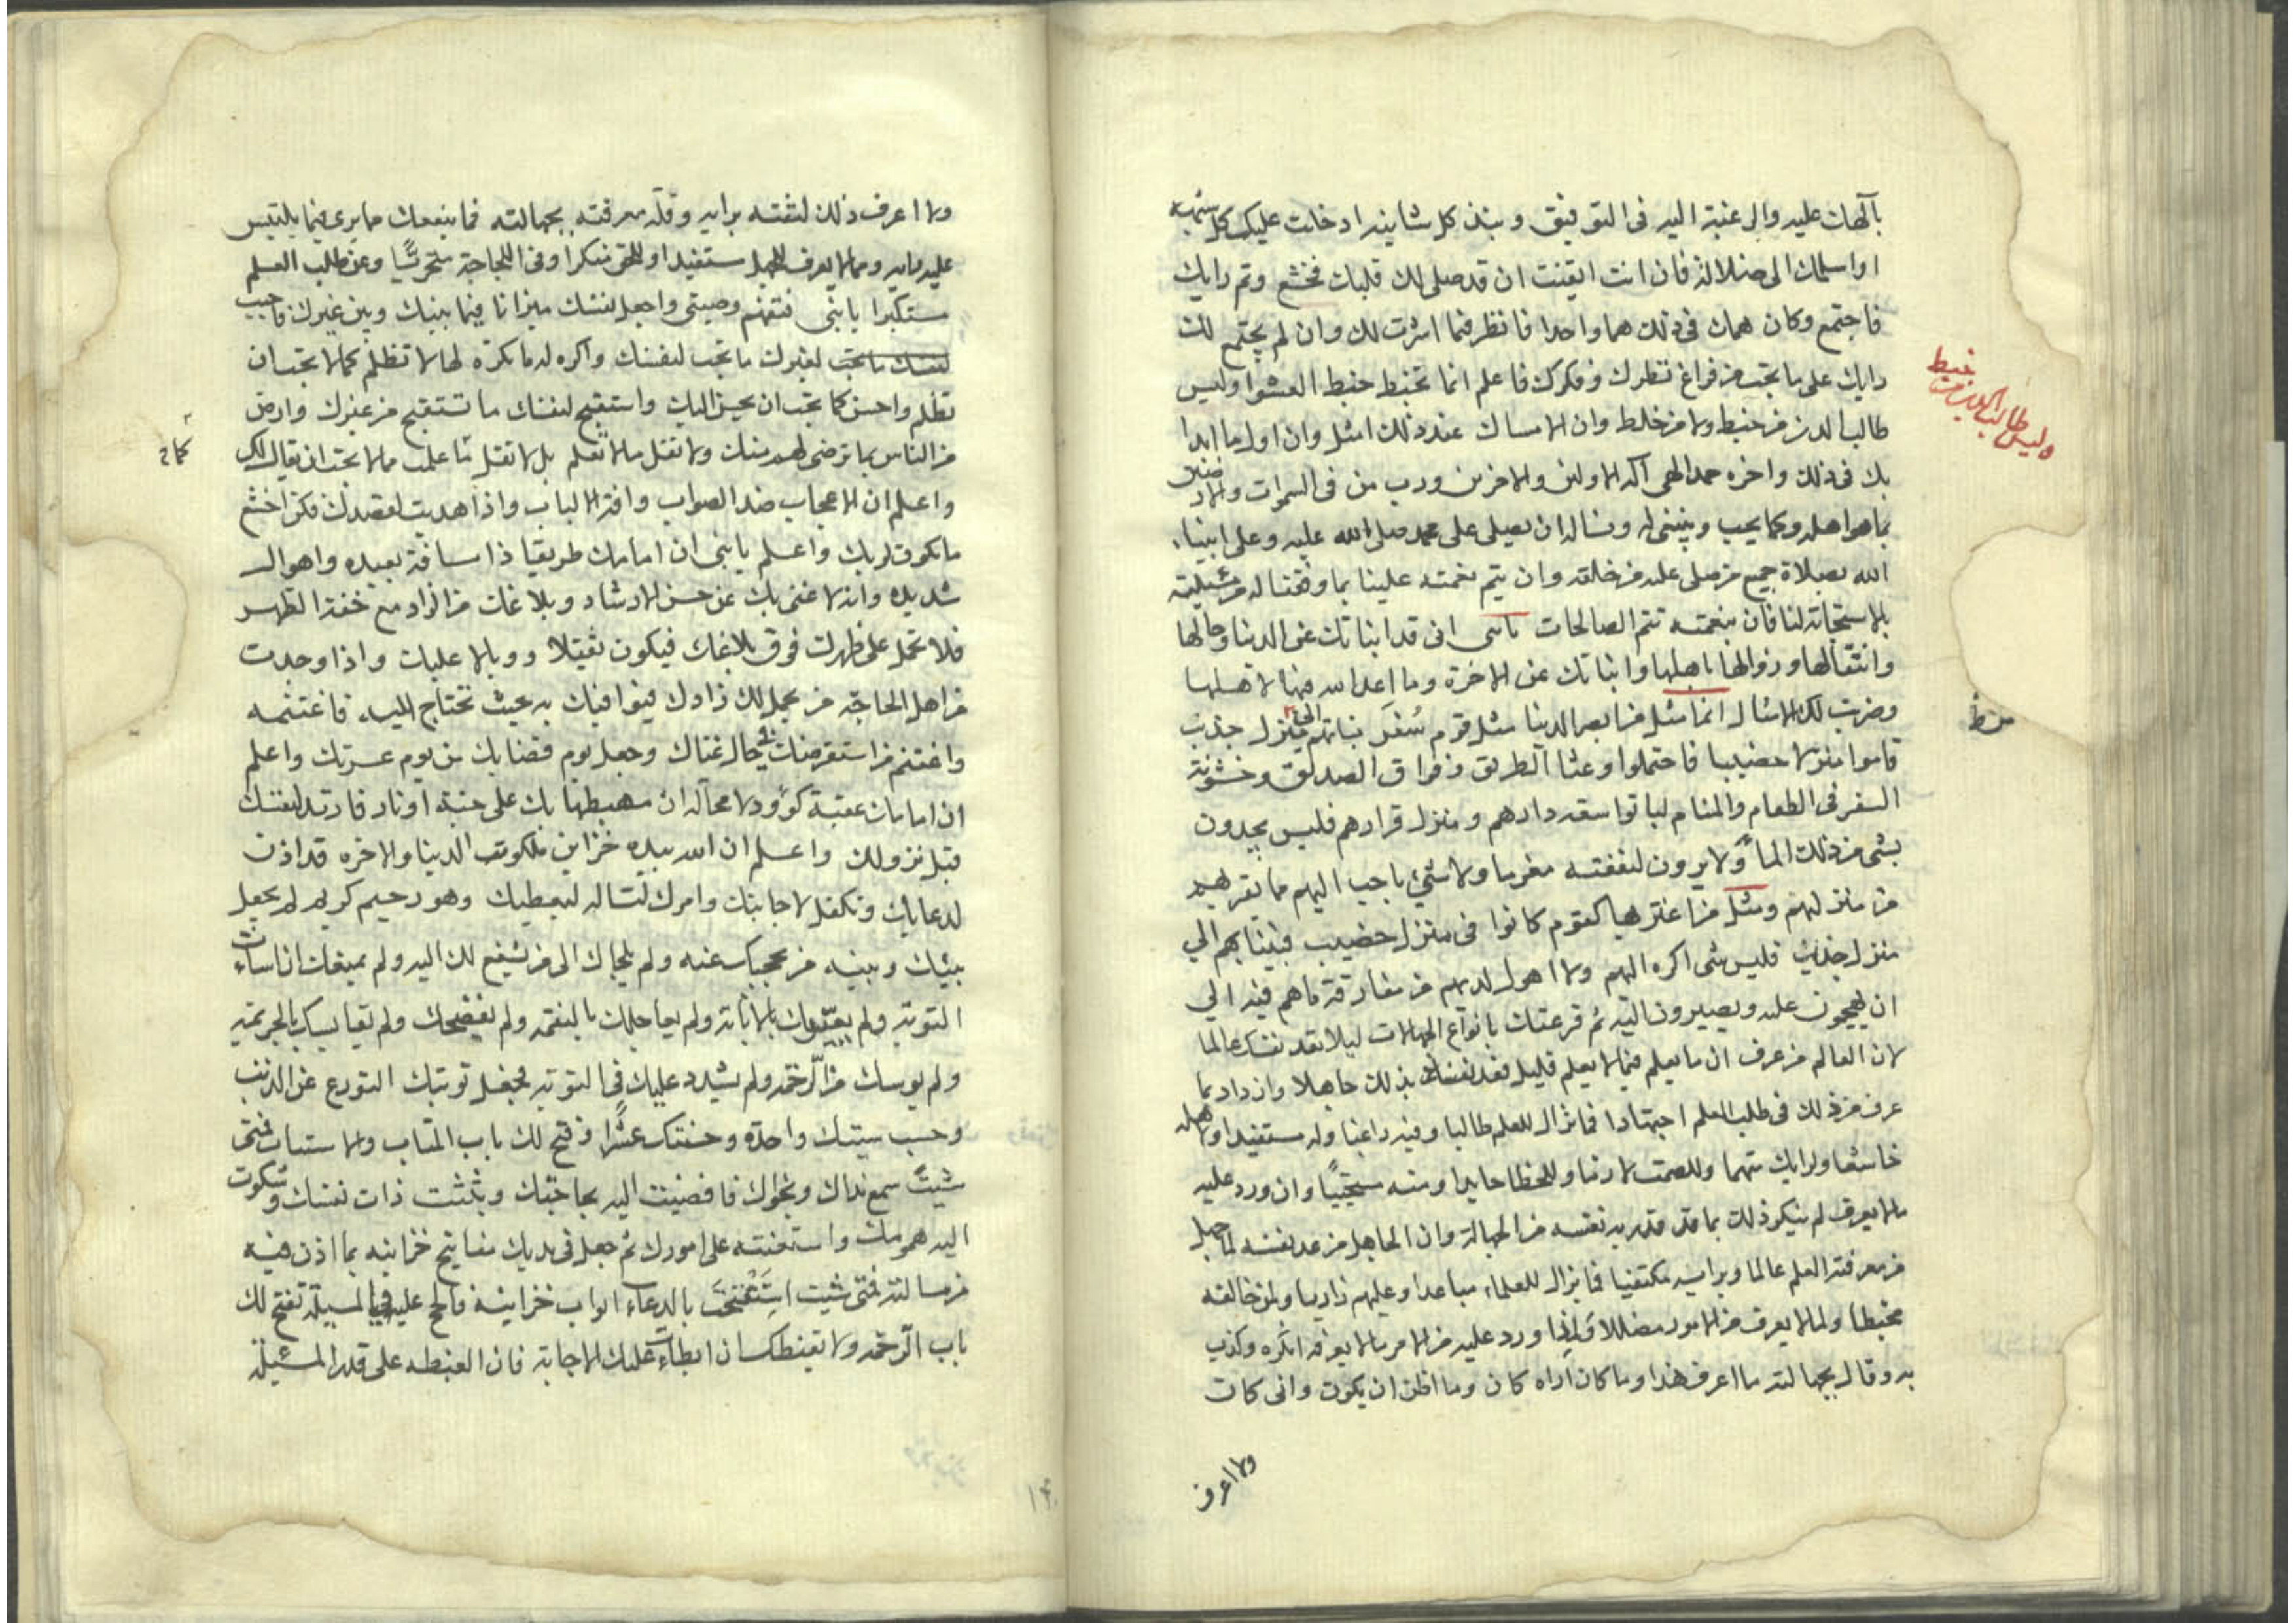 بآلهك عليه والرغبة اليه فى التوفيق ونبذ كل شاينه ادخلت عليك كل شبهة
او اسلمك الى ضلالة فان انت ايقنت ان قد صلى لك قلبك فخشع وتم رايك
فاجتمع وكان همك فى ذلك هما واحدا فانظر فيما اثرت لك وان لم يجتمع لك
رايك على ما تحب من فراغ نظرك وفكرك فاعلم انما تخبط خبط العشوا وليس
طالب الدين من خبط ولا من خلط وان الامساك عند ذلك امثل وان اول ما ابدا
بك فى ذلك واخره حمد الهى اله الاولين والاخرين ورب من فى السموات والارض
بما هو اهله وكما يحب وينبغى له ونساله ان يصلى على محمد صلى الله عليه وعلى انبياء
الله بصلاة جميع من صلى عليه من خلقه وان يتم نعمته علينا بما وفقنا له من مسئيلته
بالاستجابة لنا فان بنعمته تتم الصالحات يا بنى انى قد انباتك عن الدنيا وحالها
وانتقالها وزوالها باهلها وانباتك عن الاخرة وما اعد الله فيها لاهلها
وضربت لك الامثال انما مثل من ابصر الدنيا مثل قوم سفر نبا بهم منزل جذب
فاموا منزلا خصيبا فاحتملوا وعثا الطريق وفراق الصديق وخشونة
السفر فى الطعام والمنام لياتوا سعة دارهم ومنزل قرارهم فليس يجدون
بشى من ذلك الما ولا يرون لنفقته مغرما ولا شئ باحب اليهم مما يقربهم
من منزلهم ومثل من اغتر بها كقوم كانوا فى منزل خصيب فنبا بهم الي
منزل جذب فليس شى اكره اليهم ولا اهول لديهم من مفارقة ما هم فيه الي
ان يهجمون عليه ويصيرون اليه ثم قرعتك بانواع الجهالات ليلا تعد نفسك عالما
لان العالم من عرف ان ما يعلم فيما لا يعلم قليل فعد نفسه بذلك جاهلا وازداد بما
عرف من ذلك فى طلب العلم اجتهادا فما يزال للعلم طالبا وفيه راغبا وله مستفيدا ولاهله
خاشعا ولرايك متهما وللصمت لازما وللخطا حايدا ومنه مستحييا وان ورد عليه
مالا يعرف لم ينكر ذلك بما قد قدر به نفسه من الجهالة وان الجاهل من عد نفسه لما جهل
من معرفة العلم عالما وبرايه مكتفيا فما يزال للعلماء مباعدا وعليهم زاريا ولمن خالفه
مخبطا ولما لا يعرف من الامور مضللا واذا ورد عليه من الامر ما لا يعرفه انكره وكذب
به وقال بجهالته ما اعرف هذا وما كان اراه كان وما اظن ان يكون وانى كان
ولا اعرف
وليس طالب الدين من خبط
ولا اعرف ذلك لثقته برايه وقلة معرفته بجهالته فما ينفعك مما يرى فيما يلتبس
عليه برايه ومما لا يعرف للجهل مستفيدا وللحق منكرا وفى اللجاجة متجرئا وعن طلب العلم
مستكبرا يا بنى فتفهم وصيتى واجعل نفسك ميزانا فيما بينك وبين غيرك فاحبب
لنفسك ما تحب لغيرك ما تحب لنفسك واكره له ما تكره لها لا تظلم كما لا تحب ان
تظلم واحسن كما تحب ان يحسن اليك واستقبح لنفسك ما تستقبح من غيرك وارض
من الناس بما ترضى لهم منك ولا تقل ما لا تعلم بل لا تقل ما علمت مما لا تحب ان يقال لك
واعلم ان الاعجاب ضد الصواب وافة الالباب واذا هديت لقصدك فكن اخشع
ما تكون لربك واعلم يا بنى ان امامك طريقا ذا مسافة بعيده واهوال
شديده وانه لا غنى بك عن حسن الارشاد وبلاغك من الزاد مع خفة الظهر
فلا تحمل على ظهرك فوق بلاغك فيكون ثقيلا ووبالا عليك واذا وجدت
من اهل الحاجة من يحمل لك زادك فيوافيك به حيث تحتاج اليه فاغتنمه
واغتنم من استقرضك فى حال غناك وجعل يوم قضايك من يوم عسرتك واعلم
ان امامك عقبة كؤود لا محاله ان مهبطها بك على جنة او نار فارتد لنفسك
قبل نزولك واعلم ان الله بيده خزاين ملكوت الدنيا والاخره قد اذن
لدعايك وتكفل لاجابتك وامرك لتساله ليعطيك وهو رحيم كريم لم يجعل
بينك وبينه من يحجبك عنه ولم يلجاك الى من يشفع لك اليه ولم يمنعك ان اسات
التوبة ولم يعيرك بالانابة ولم يعاجلك بالنقمه ولم يفضحك ولم يقايسك بالجريمة
ولم يويسك من الرحمه ولم يشدد عليك فى التوبه فجعل توبتك التورع عن الذنب
وحسب سيئتك واحدة وحسنتك عشرا وفتح لك باب المتاب والاستتاب فمتى
شيت سمع نداك ونجواك فافضيت اليه بحاجتك وبثثت ذات نفسك وشكوت
اليه همومك واستعنته على امورك ثم جعل فى يديك مفاتيح خزاينه بما اذن فيه
من مسالته فمتى شيت استفتحت بالدعاء ابواب خزاينه فالح عليه فى المسيلة تفتح لك
باب الرحمه ولا تقنطك ان ابطات عليك الاجابة فان العطيه على قدر المسئيلة
١٤